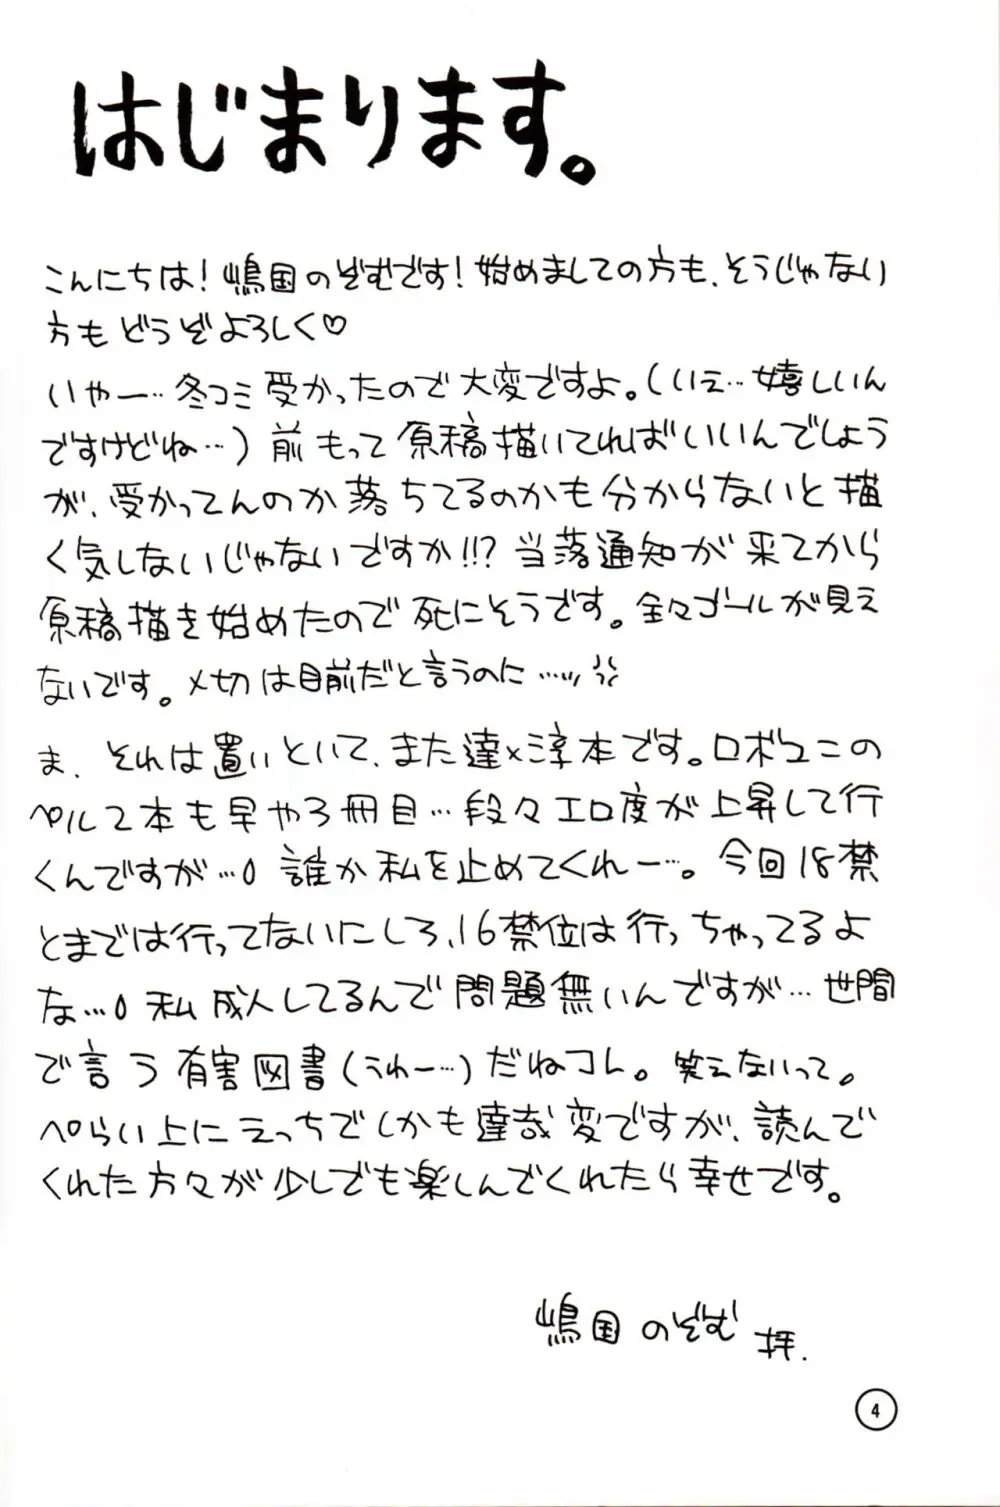 はじまります。
こんにちは！嶋国のぞむです！始めましての方も、そうじゃない
方もどうぞよろしく♡
いやー…冬コミ受かったので大変ですよ。（いえ…嬉しいん
ですけどね…）前もって原稿描いてればいいんでしょう
が、受かってんのか落ちてるのかも分からないと描
く気しないじゃないですか!!?当落通知が来てから
原稿描き始めたので死にそうです。全々ゴールが見え
ないです。〆切は目前だと言うのに……
ま、それは置いといて、また達×淳本です。ロボユニの
ペル2本も早や3冊目…段々エロ度が上昇して行
くんですが…0 誰か私を止めてくれー…。今回18禁
とまでは行ってないにしろ、16禁位は行っちゃってるよ
な…0 私成人してるんで問題無いんですが…世間
で言う有害図書（うわー…）だねコレ。笑えないって。
ぺらい上にえっちでしかも達哉変ですが、読んで
くれた方々が少しでも楽しんでくれたら幸せです。
嶋国のぞむ 拝.
4